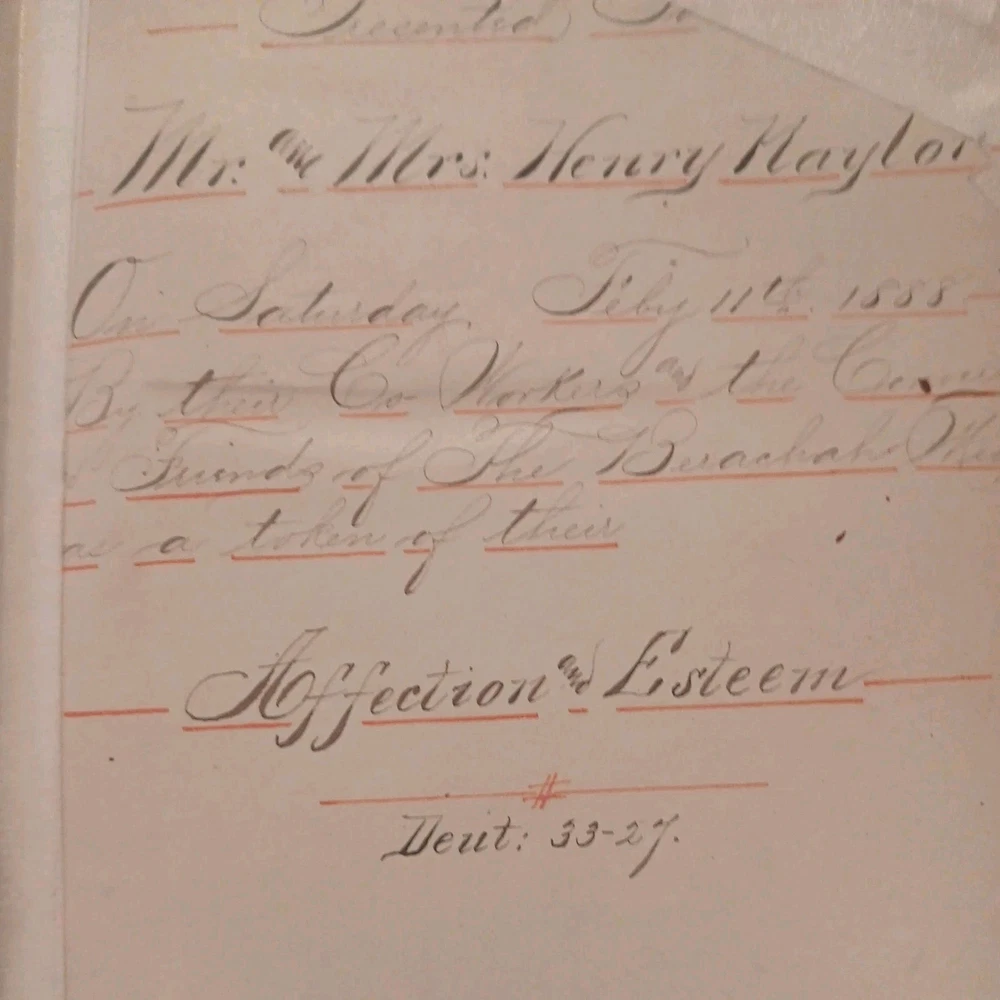 Presented To
Mr. and Mrs. Henry Naylor
On Saturday Feby 11th. 1888
By their Co Workers and the
Friends of The Berachah
as a token of their
Affection and Esteem
Deut: 33-27.